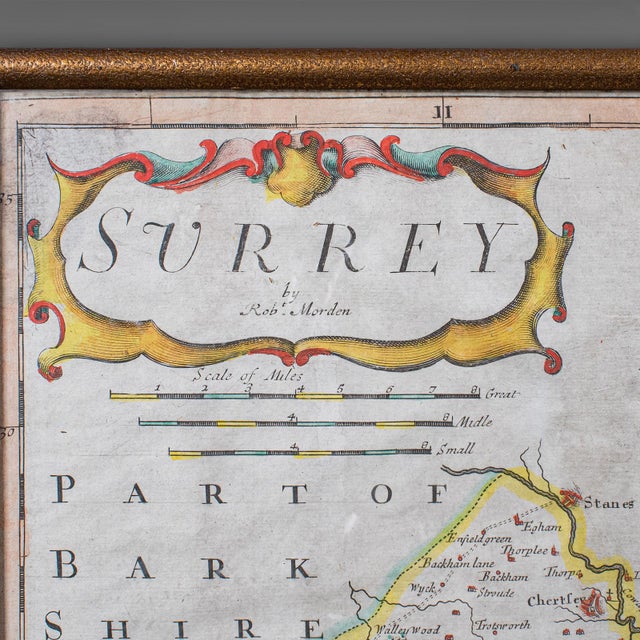 11
SURREY
by
Rob.t Morden
Scale of Miles
1 2 3 4 5 6 7 8 Great
4 8 Midle
4 8 Small
35
30
PART OF
BARK
SHIRE
Stanes
Egham
Enfieldgreen
Thorplee
Backham lane
Backham
Thorpe
Wyck
Stroude
Chertsey
Trotsworth
Walley Wood